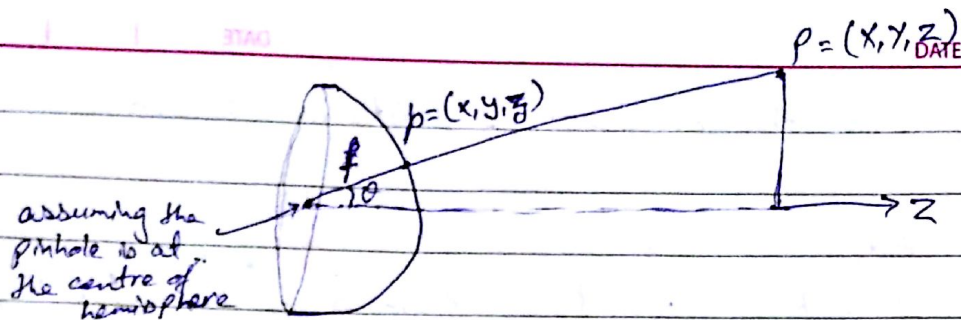 DATE
P = (X, Y, Z)
DATE
p = (x, y, z)
f
θ
Z
assuming the
pinhole is at
the centre of
hemisphere